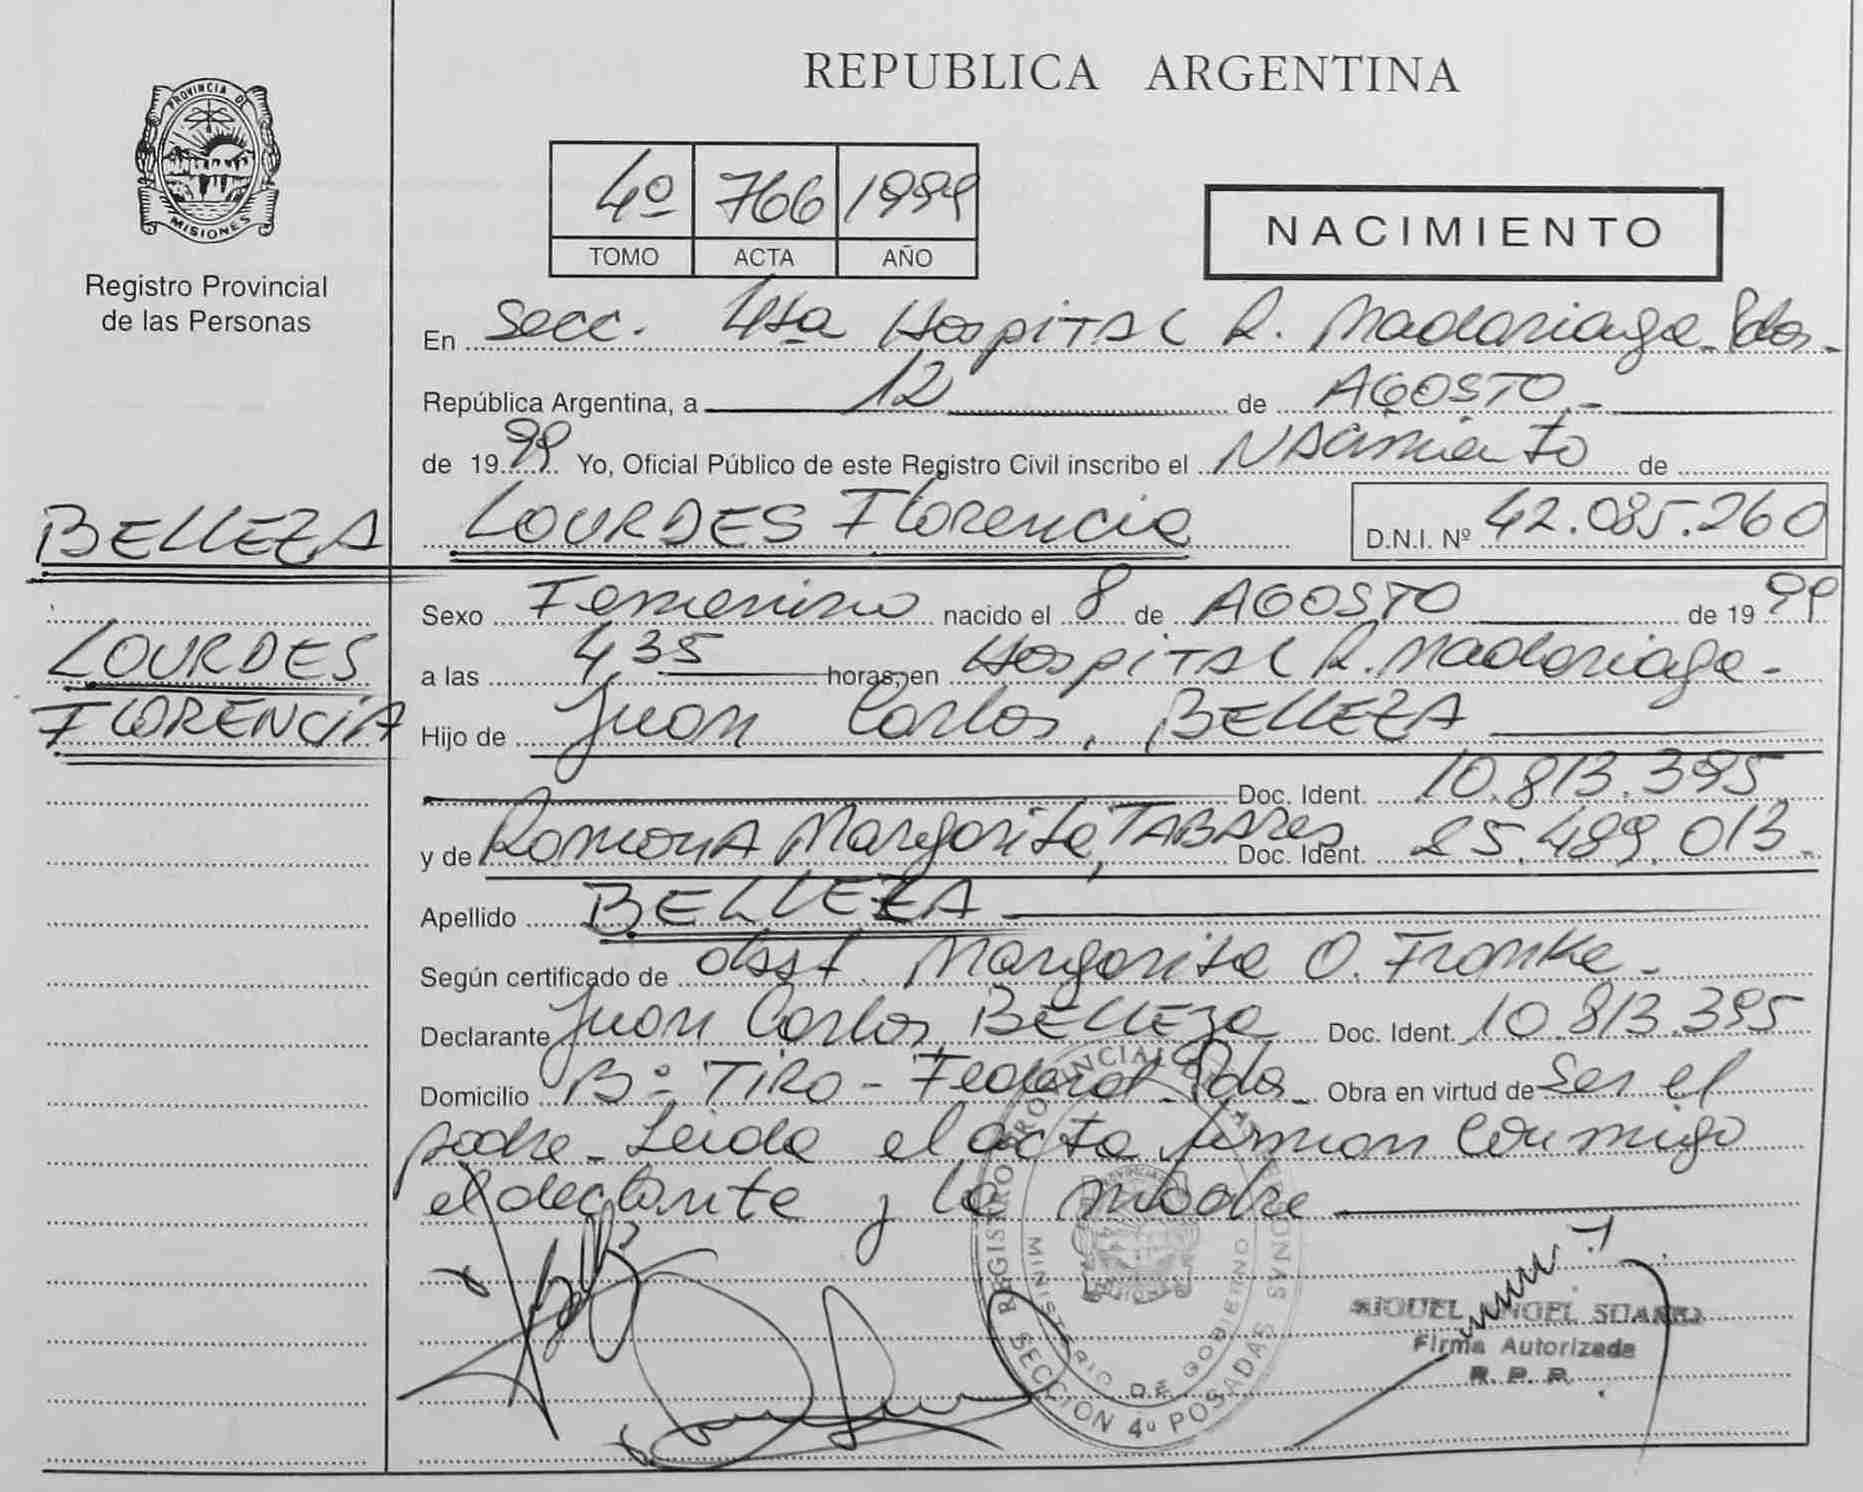 REPUBLICA ARGENTINA
PROVINCIA DE
MISIONES
Registro Provincial
de las Personas
4º 766 1999
TOMO ACTA AÑO
NACIMIENTO
En Secc. 4ta Hospital R. Madariaga - Pdas -
República Argentina, a 12 de AGOSTO -
de 1999 Yo, Oficial Público de este Registro Civil inscribo el NAcimiento de
BELLEZA
LOURDES Florencia D.N.I. Nº 42.085.260
Sexo Femenino nacido el 8 de AGOSTO de 1999
LOURDES
a las 4 35 horas, en Hospital R. Madariaga -
FLORENCiA
Hijo de Juan Carlos, BELLEZA
Doc. Ident. 10.813.395
y de RamonA Margarita, TABARes Doc. Ident. 25.489.013 -
Apellido BELLEZA
Según certificado de obst. Margarita O. Franke -
Declarante Juan Carlos, BELLEZa Doc. Ident. 10.813.395
Domicilio Bº TIRO - Federal - Pdas - Obra en virtud de Ser el
padre - Leida el acta firman conmigo
el declarante y la madre
REGISTRO PROVINCIAL DE LAS PERSONAS
MINISTERIO DE GOBIERNO
SECCIÓN 4º POSADAS
MIGUEL ANGEL SUAREZ
Firma Autorizada
R. P. P.